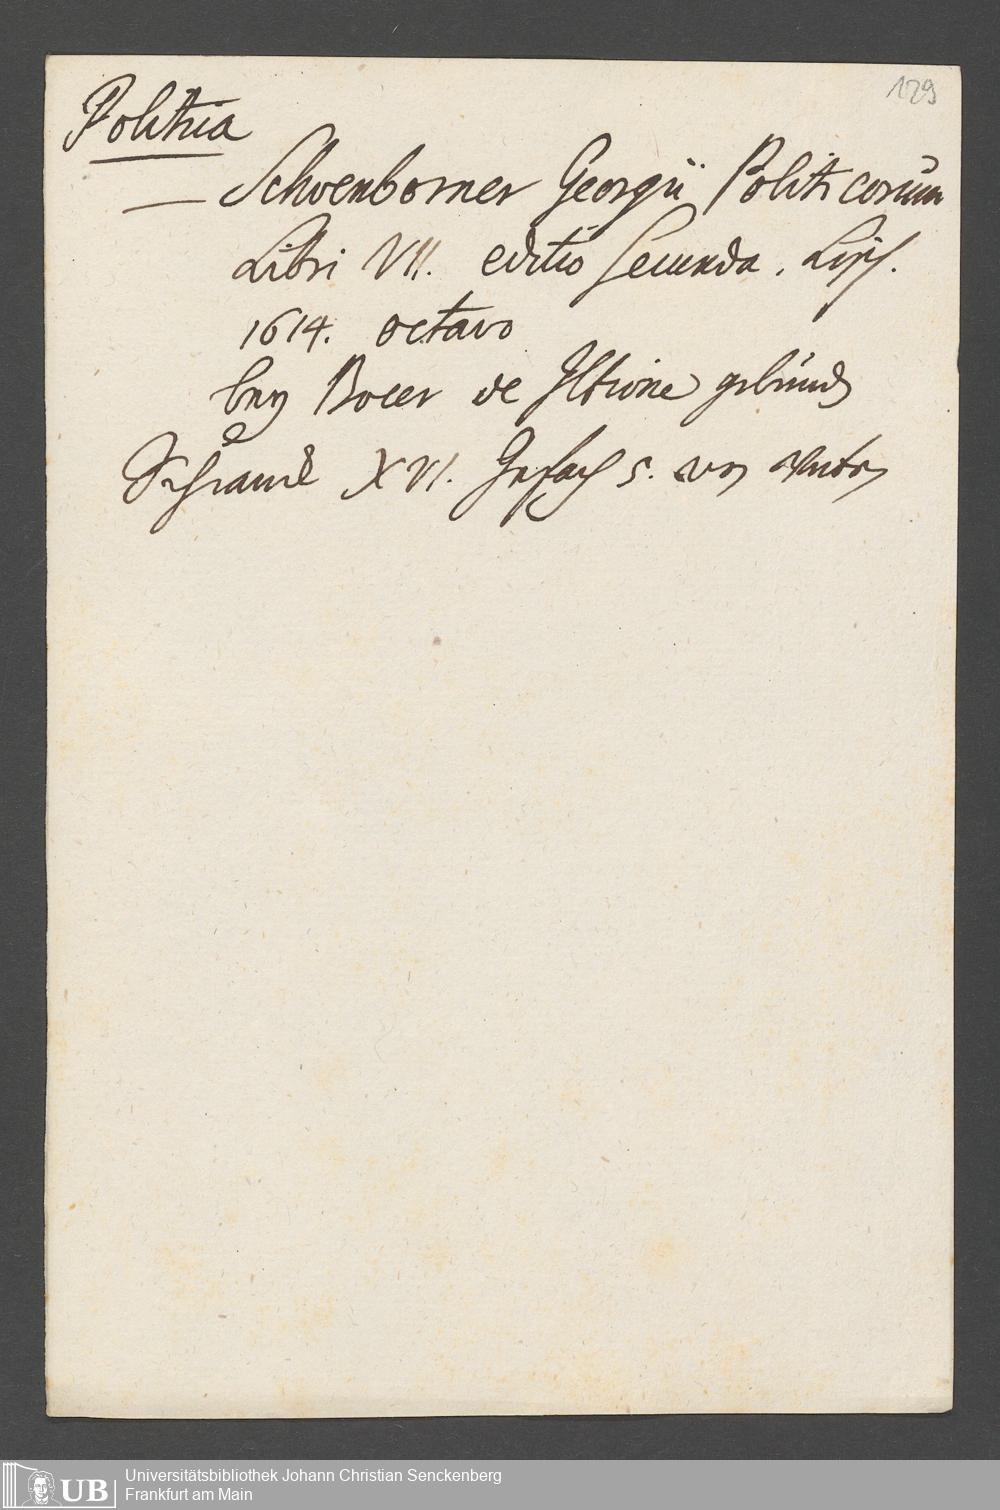 129
Politia
— Schoenborner Georgii Politicorum
Libri VII. editio secunda. Lips.
1614. octavo
bey Bocer de gebund
Schranck XVI. Gefach 5. von unten
Universitätsbibliothek Johann Christian Senckenberg
Frankfurt am Main
UB